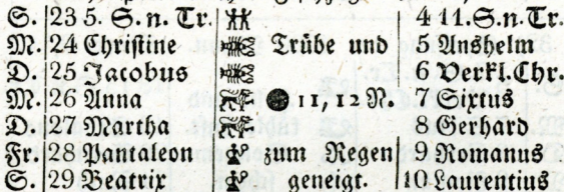 S. 23 5. S. n. Tr. 4 11. S. n. Tr.
M. 24 Christine Trübe und 5 Anshelm
D. 25 Jacobus 6 Verkl. Chr.
M. 26 Anna 11, 12 N. 7 Sixtus
D. 27 Martha 8 Gerhard
Fr. 28 Pantaleon zum Regen 9 Romanus
S. 29 Beatrix geneigt. 10 Laurentius